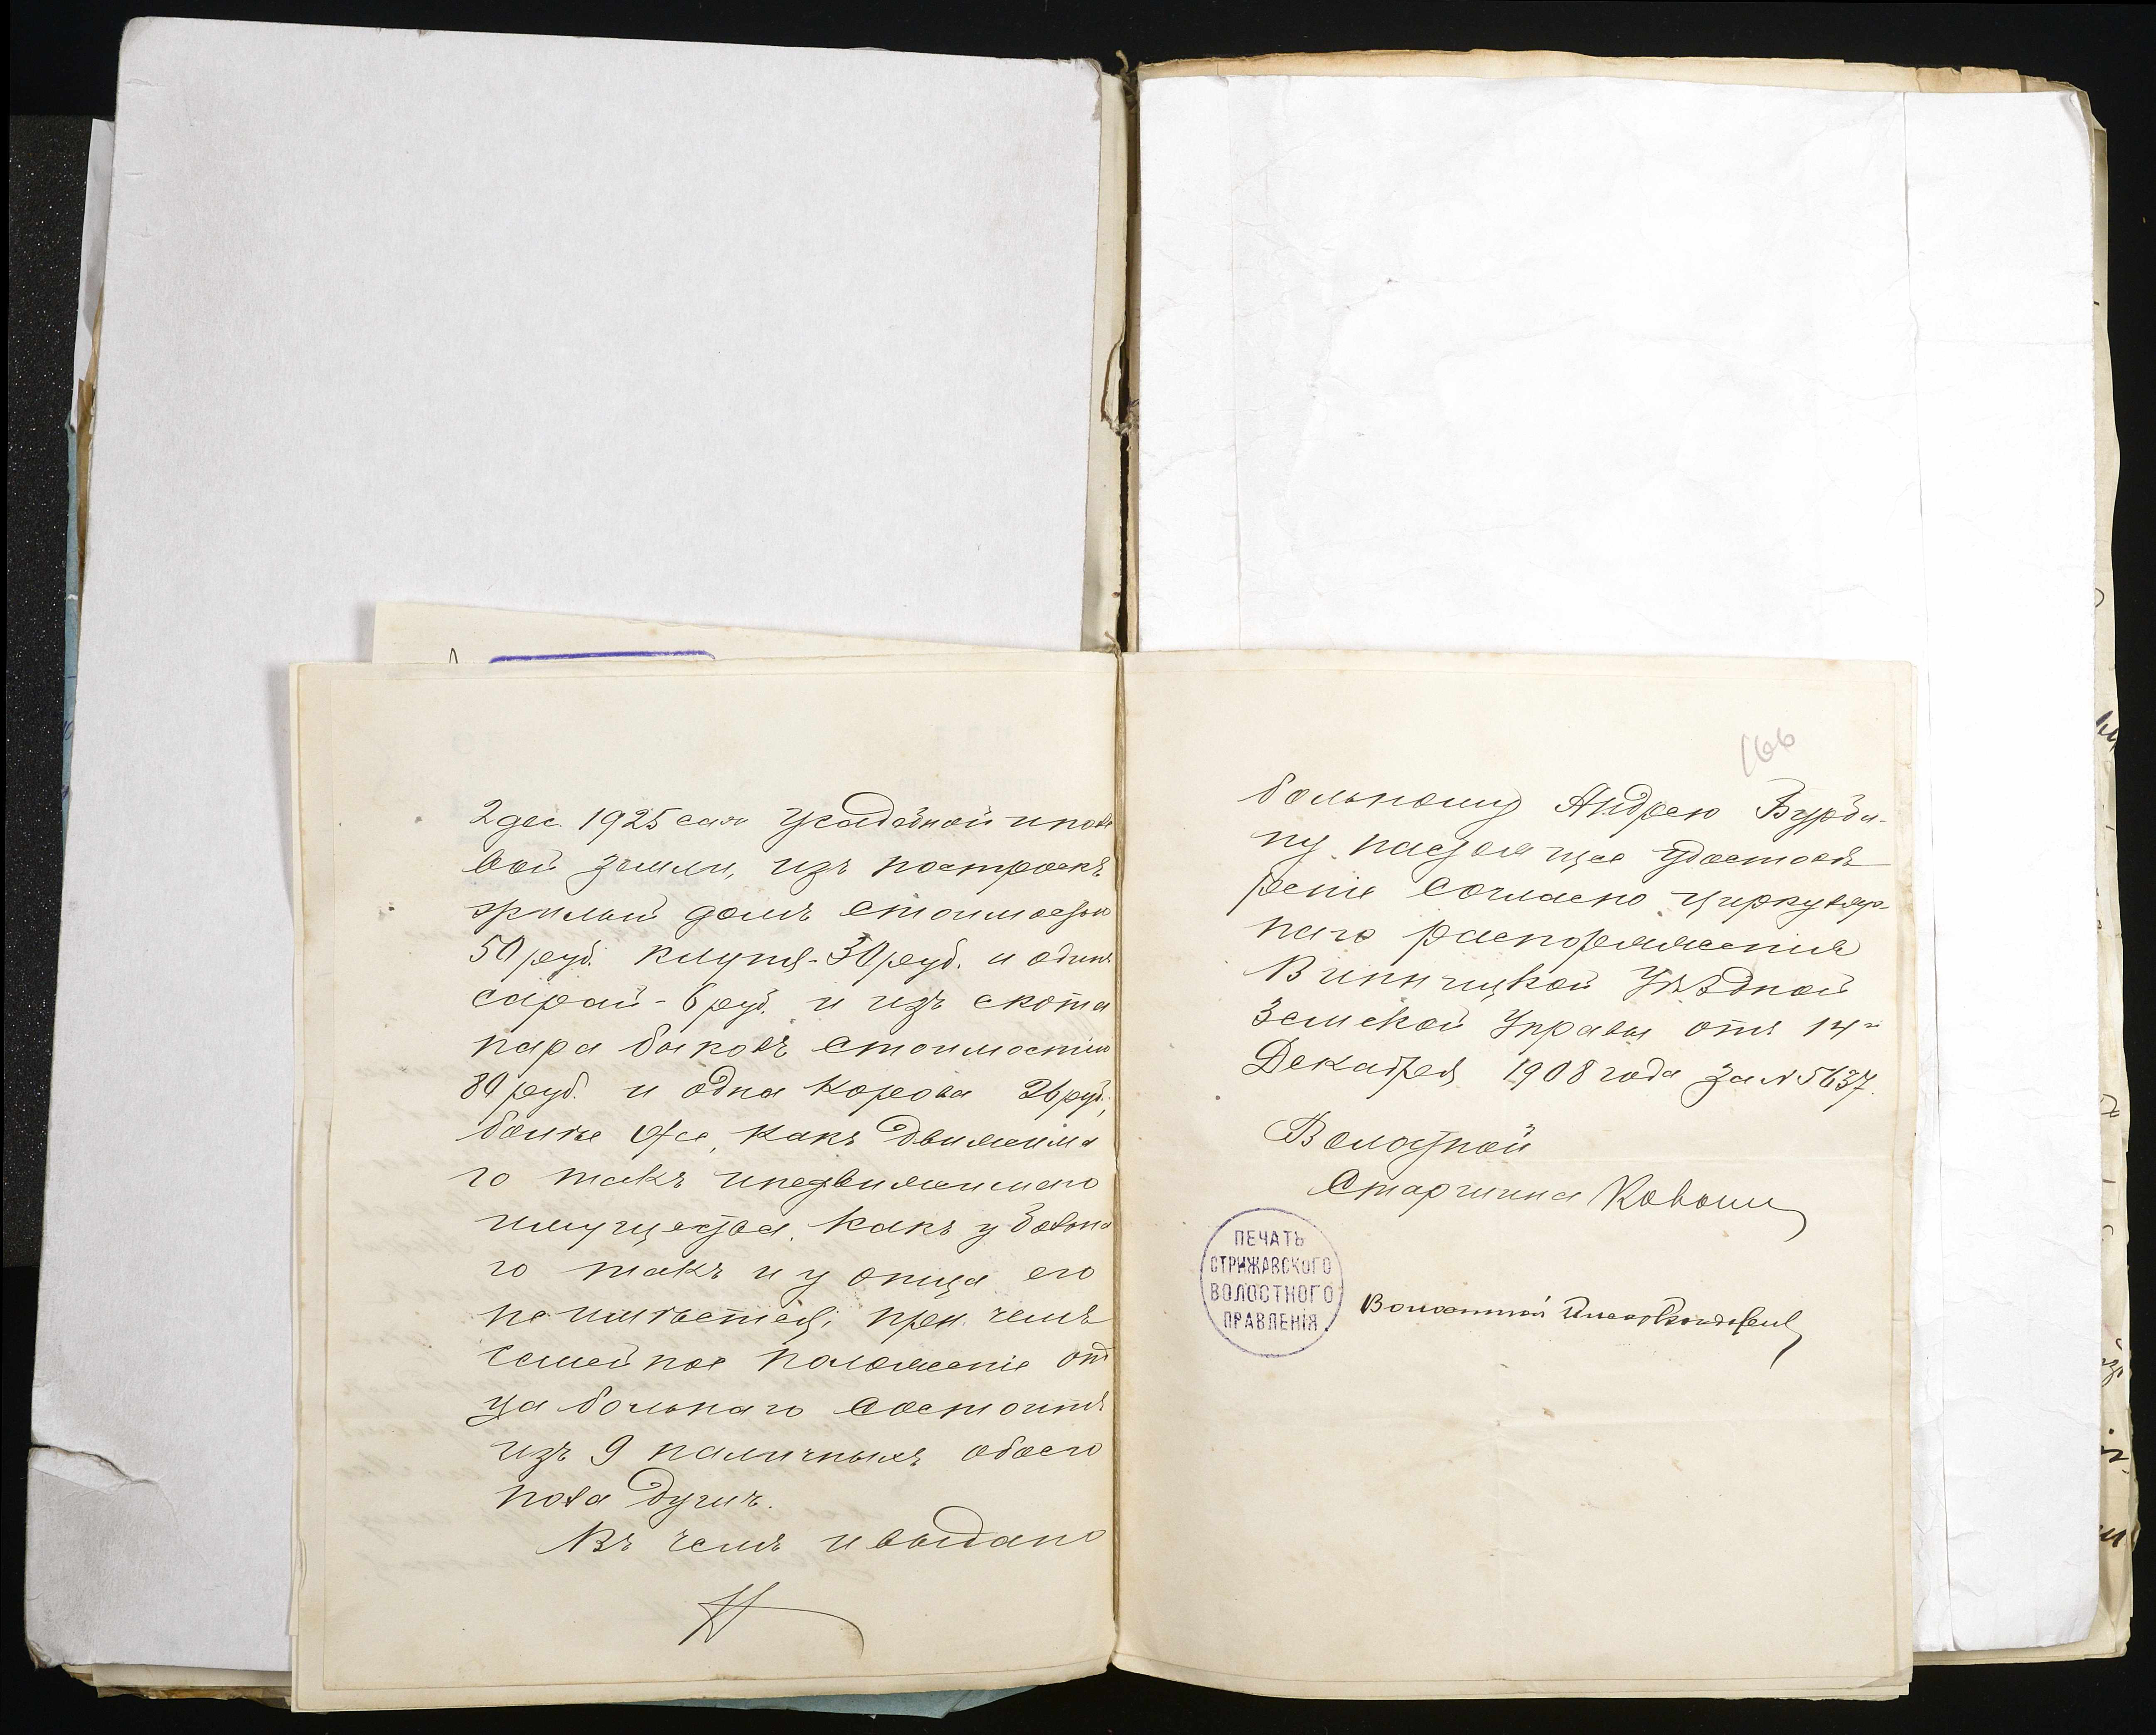 2 дес. 1925 саж усадебной и поле
вой земли, изъ построекъ
жилый домъ стоимостью
50 руб. клуня - 30 руб. и одинъ
сарай - 6 руб. и изъ скота
пара быковъ стоимостью
80 руб. и одна корова 26 руб.,
более же, какъ движима
го такъ и недвижимаго
имущества, какъ у больна
го такъ и у отца его
не имѣется, при чемъ
семейное положеніе от
ца больнаго состоитъ
изъ 9 наличныхъ обоего
пола душъ.
Въ чемъ и выдано
166
больному Андрею Бурби-
ну настоящее удостовѣ
реніе согласно циркуляр-
наго распоряженія
Винницкой Уѣздной
Земской Управы отъ 14-
Декабря 1908 года за № 5637.
Волостной
Старшина
ПЕЧАТЬ
СТРИЖАВСКОГО
ВОЛОСТНОГО
ПРАВЛЕНІЯ.
Волостной Писарь